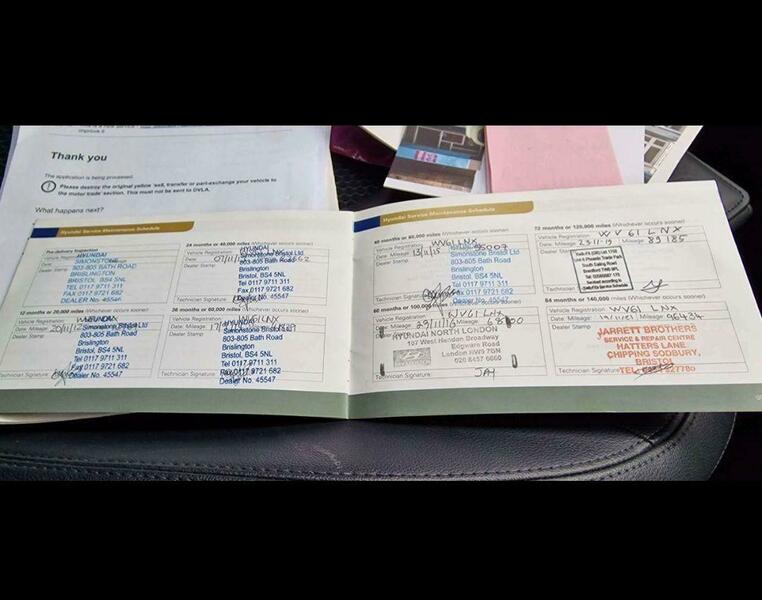 Improve it
Thank you
The application is being processed.
Please destroy the original yellow 'sell, transfer or part-exchange your vehicle to
the motor trade' section. This must not be sent to DVLA.
What happens next?
Hyundai Service Maintenance Schedule
Pre-delivery Inspection
Vehicle Registration
Date
Dealer Stamp
HYUNDAI
SIMONSTONE
803-805 BATH ROAD
BRISLINGTON
BRISTOL BS4 5NL
TEL 0117 9711 311
FAX 0117 9721 682
DEALER No. 45547
12 months or 20,000 miles (Whichever occurs sooner)
Vehicle Registration WV61 LNX
Date 20/11/12 Mileage
Dealer Stamp
HYUNDAI
Simonstone Bristol Ltd
803-805 Bath Road
Brislington
Bristol, BS4 5NL
Tel 0117 9711 311
Fax 0117 9721 682
Dealer No. 45547
24 months or 40,000 miles (Whichever occurs sooner)
Vehicle Registration WV61 LNX
Date Mileage
Dealer Stamp
HYUNDAI
Simonstone Bristol Ltd
803-805 Bath Road
Brislington
Bristol, BS4 5NL
Tel 0117 9711 311
Fax 0117 9721 682
Dealer No. 45547
Technician Signature
36 months or 60,000 miles (Whichever occurs sooner)
Vehicle Registration WV61LNX
Date Mileage
Dealer Stamp
Simonstone Bristol Ltd
803-805 Bath Road
Brislington
Bristol, BS4 5NL
Tel 0117 9711 311
Fax 0117 9721 682
Dealer No. 45547
Technician Signature
Hyundai Service Maintenance Schedule
48 months or 80,000 miles (Whichever occurs sooner)
Vehicle Registration WV61 LNX
Date 13/11/15 Mileage
Dealer Stamp
Simonstone Bristol Ltd
803-805 Bath Road
Brislington
Bristol, BS4 5NL
Tel 0117 9711 311
Fax 0117 9721 682
Dealer No. 45547
Technician Signature
60 months or 100,000 miles (Whichever occurs sooner)
Vehicle Registration WV61 LNX
Date 29/11/16 Mileage
Dealer Stamp
HYUNDAI NORTH LONDON
107 West Hendon Broadway
Edgware Road
London NW9 7BN
020 8457 6600
Technician Signature JAY
72 months or 120,000 miles (Whichever occurs sooner)
Vehicle Registration WV61 LNX
Date Mileage 83185
Dealer Stamp
Technician Signature
84 months or 140,000 miles (Whichever occurs sooner)
Vehicle Registration WV61 LNX
Date Mileage 96434
Dealer Stamp
JARRETT BROTHERS
SERVICE & REPAIR CENTRE
HATTERS LANE
CHIPPING SODBURY,
BRISTOL
Technician Signature TEL